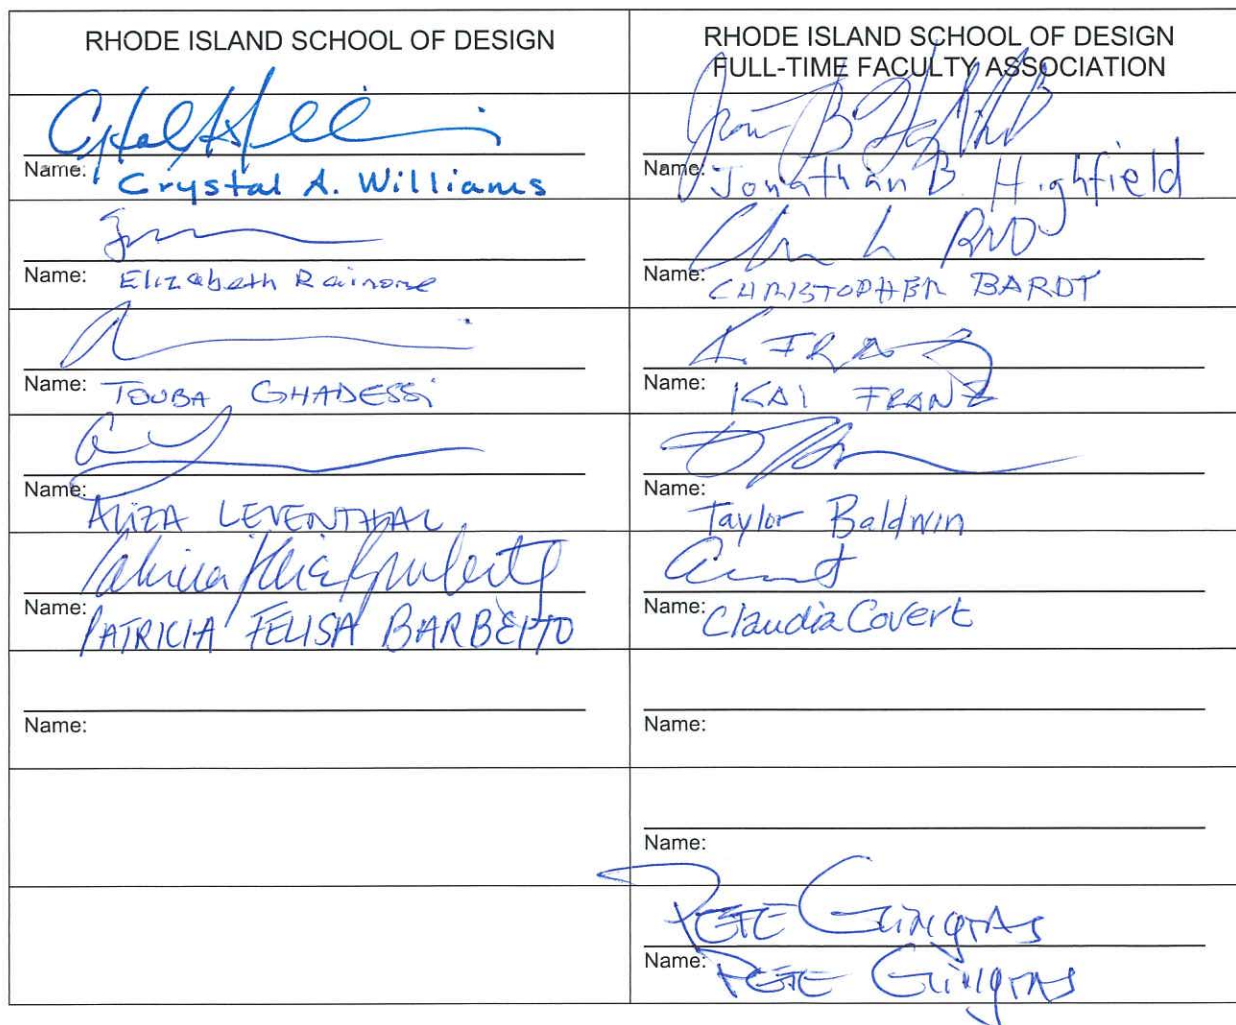 RHODE ISLAND SCHOOL OF DESIGN
RHODE ISLAND SCHOOL OF DESIGN
FULL-TIME FACULTY ASSOCIATION
Name: Crystal A. Williams
Name: Jonathan B. Highfield
Name: Elizabeth Rainone
Name: CHRISTOPHER BARDT
K. FRANZ
Name: TOUBA GHADESSi
Name: KAI FRANZ
Name: ALIZA LEVENTHAL
Name: Taylor Baldwin
Name: PATRICIA FELISA BARBEITO
Name: Claudia Covert
Name:
Name:
Name:
PETE GiNgrAs
Name: PETE GiNgrAs